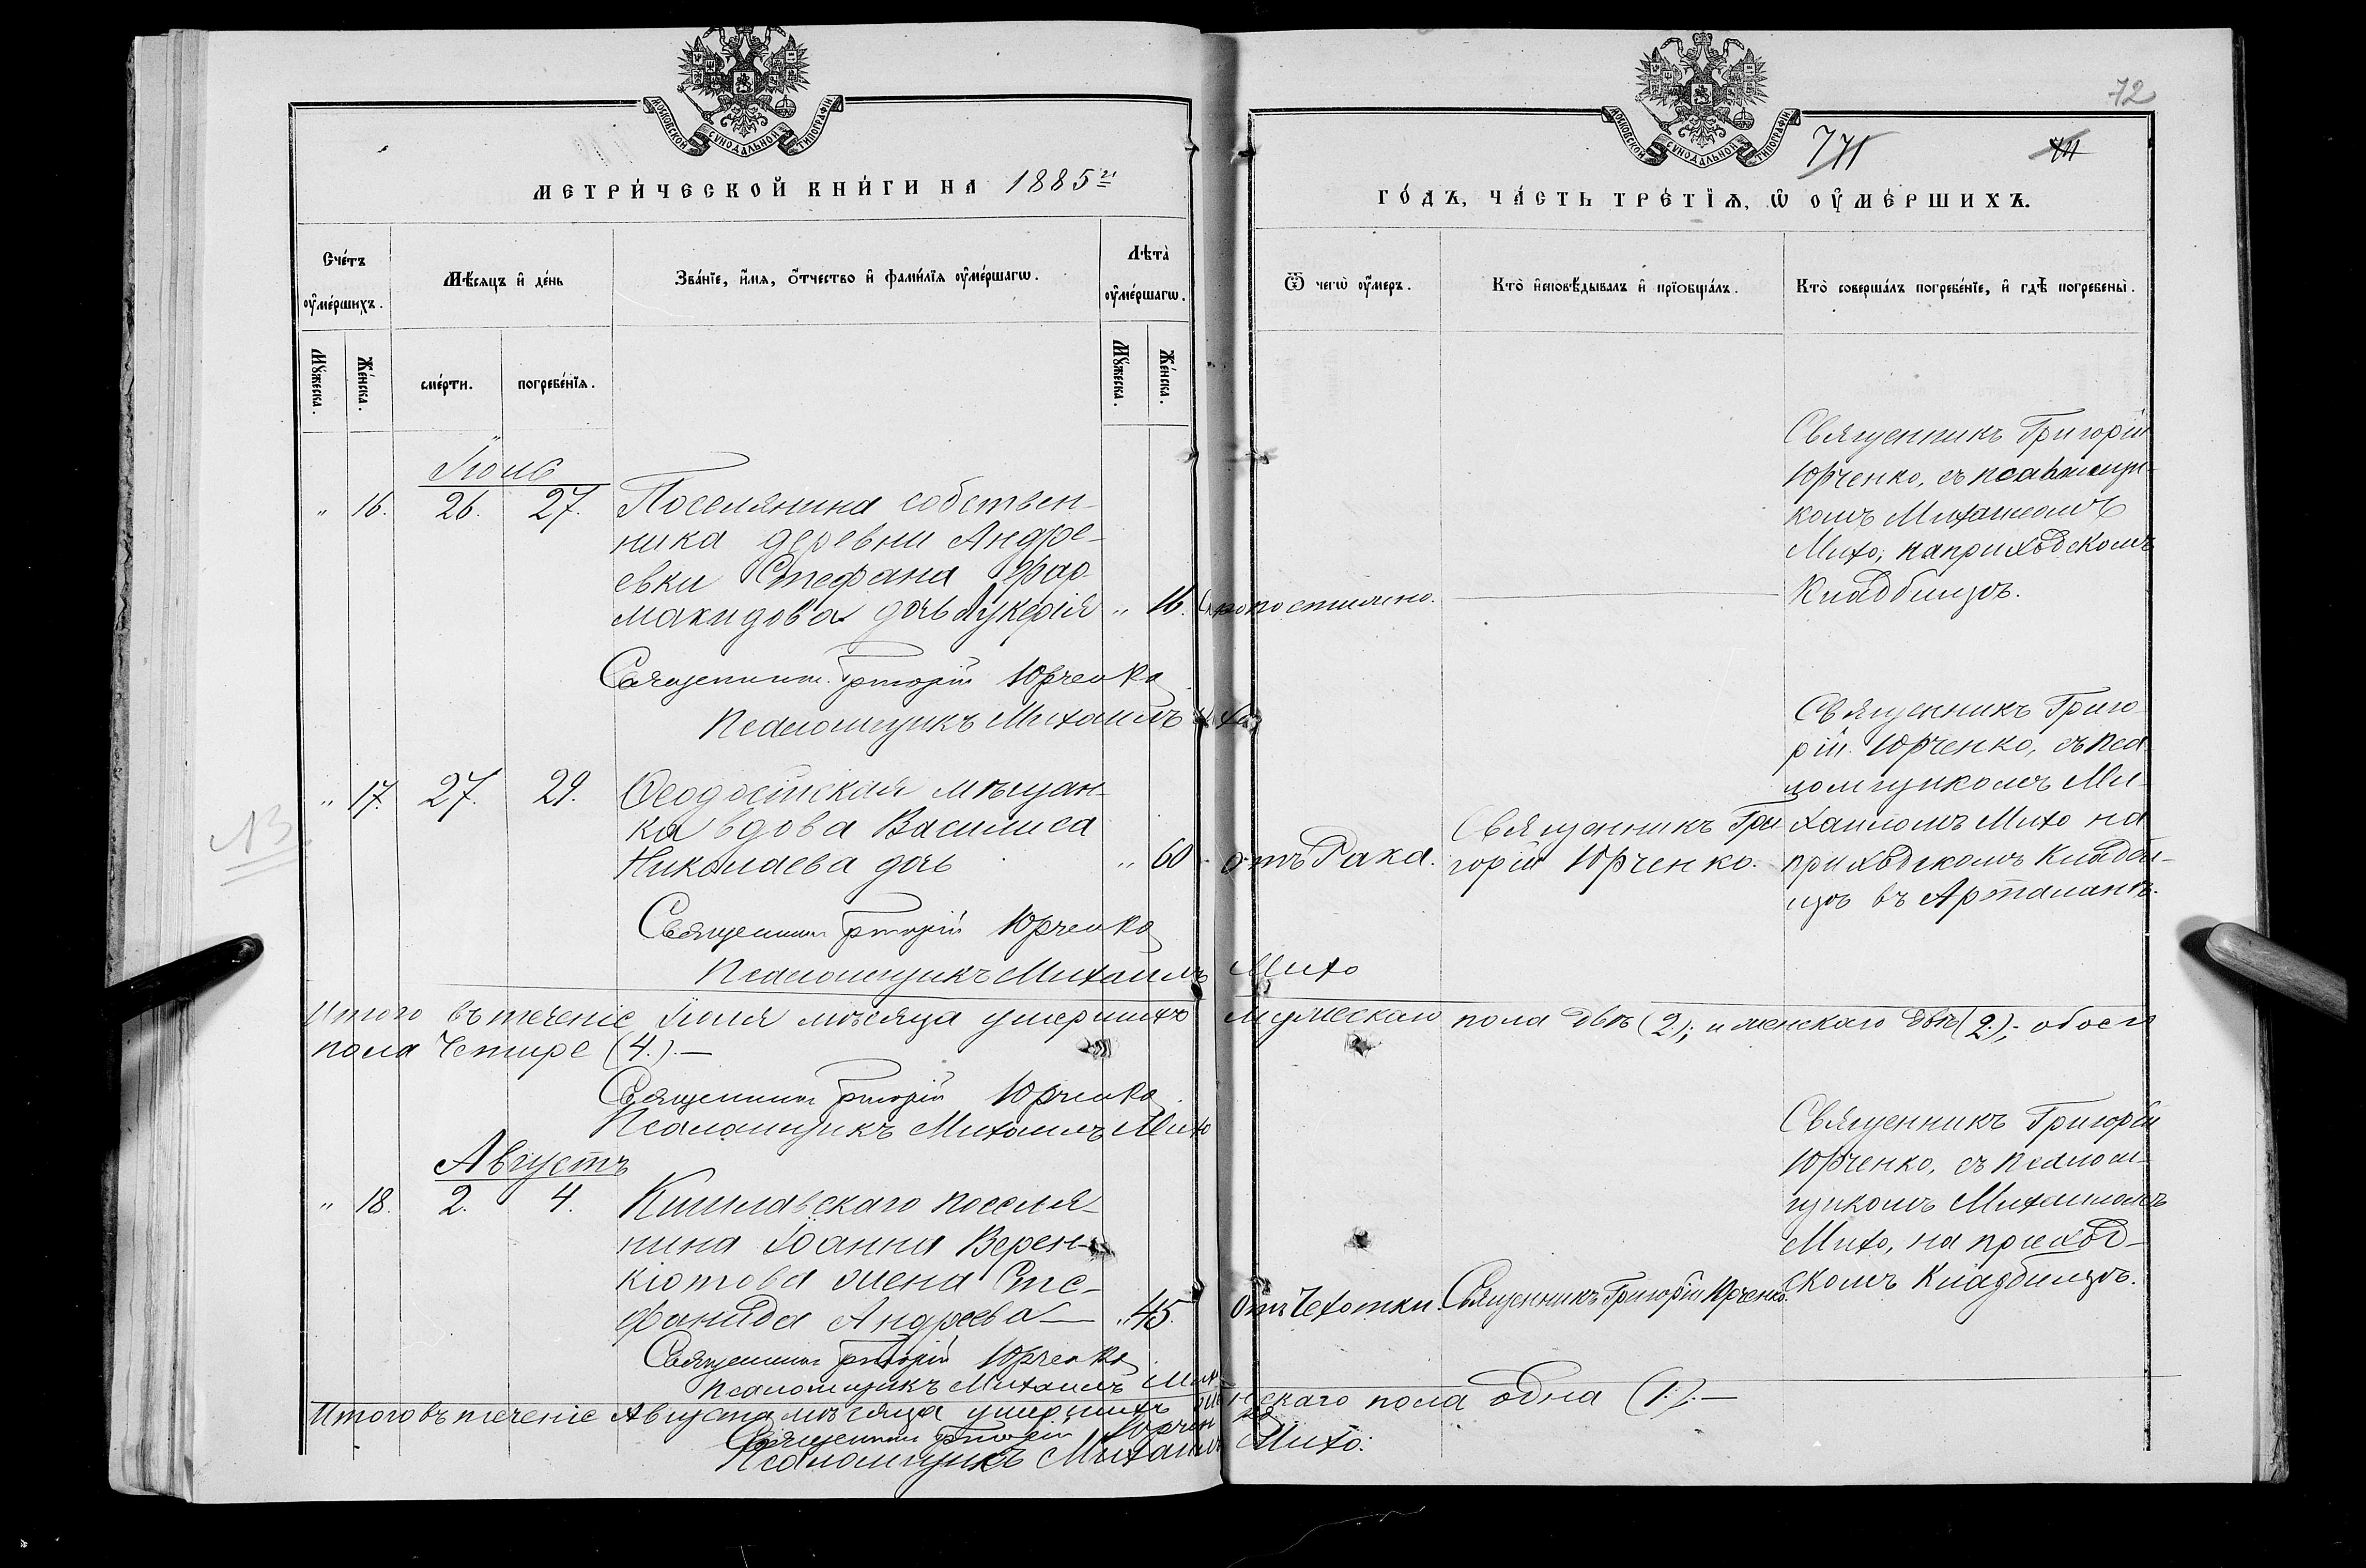 72
771
71
МОСКОВСКОЙ СѴНОДАЛЬНОЙ ТИПОГРАФІИ
МОСКОВСКОЙ СѴНОДАЛЬНОЙ ТИПОГРАФІИ
МЕТРИ́ЧЕСКОЙ КНИ́ГИ НА 1885й
ГО́ДЪ, ЧА́СТЬ ТРЕ́ТІѦ, Ѡ ОУ҆МЕ́РШИХЪ.
Сче́тъ оу҆ме́ршихъ.
Мꙋ́жеска.
Же́нска.
Мѣ́сяцъ и҆ де́нь
сме́рти.
погребе́нїѧ.
Зва́нїе, и҆́мѧ, ѻ҆́тчество и҆ фами́лїѧ оу҆ме́ршагѡ.
Лѣ́та оу҆ме́ршагѡ.
Мꙋ́жеска.
Же́нска.
Ѿ чегѡ̀ оу҆́меръ.
Кто̀ и҆сповѣ́дывалъ и҆ прїѡбща́лъ.
Кто̀ соверша́лъ погребе́нїе, и҆ гдѣ̀ погребены̀.
Іюль
" 16. 26. 27. Поселянина собствен-
ника деревни Андре-
евки Стефана Фар
макидова дочь Лукерія " 16. Скоропостижно.
Священникъ Григорій
Юрченко, съ псаломщи-
комъ Михаиломъ
Михо, на приходскомъ
кладбищѣ.
Священникъ Григорій Юрченко
Псаломщикъ Михаилъ Михо
" 17. 27. 29. Ѳеодосійская мѣщан-
ка вдова Василиса
Николаева дочь " 60 отъ Рака.
Священникъ Гри
горій Юрченко.
Священникъ Григо
рій Юрченко, съ пса
ломщикомъ Ми-
хаиломъ Михо на
приходскомъ кладби-
щѣ въ Арталанѣ.
NB.
Священникъ Григорій Юрченко
Псаломщикъ Михаилъ Михо
Итого въ теченіе Іюля мѣсяца умершихъ мужескаго пола двѣ (2.); и женскаго двѣ (2.); обоего
пола Четыре (4.).—
Священникъ Григорій Юрченко
Псаломщикъ Михаилъ Михо
Августъ
" 18. 2. 4. Кишлавскаго поселя-
нина Іоанна Верен-
кіотова жена Сте-
фанида Андреева " 45. Отъ Чахотки. Священникъ Григорій Юрченко.
Священникъ Григорій
Юрченко, съ псалом-
щикомъ Михаиломъ
Михо, на приход-
скомъ кладбищѣ.
Священникъ Григорій Юрченко
Псаломщикъ Михаилъ Михо
Итого въ теченіе Августа мѣсяца умершихъ женскаго пола одна (1.).—
Священникъ Григорій Юрченко
Псаломщикъ Михаилъ Михо.